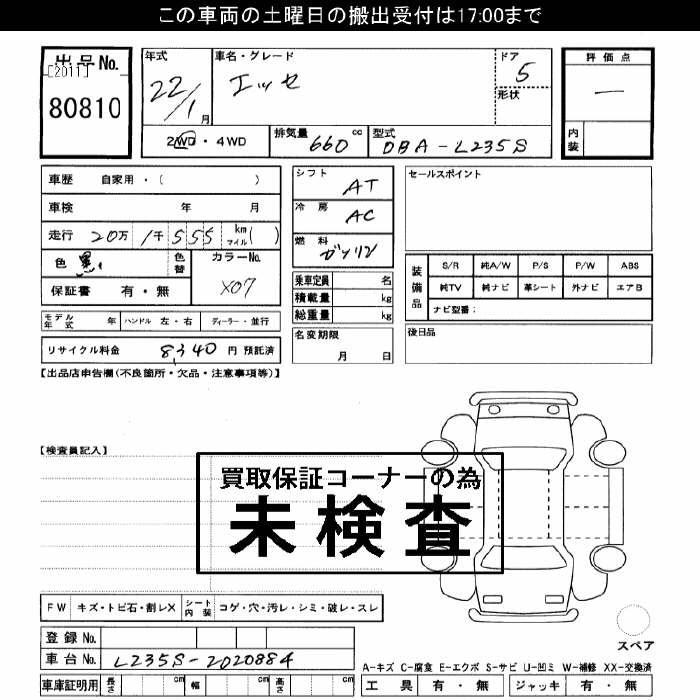 この車両の土曜日の搬出受付は17:00まで
出品No.
[2011]
80810
年式
22/1月
車名・グレード
エッセ
ドア
5
形状
評価点
一
内装
2WD・4WD
排気量 660 cc
型式 DBA-L235S
車歴 自家用・( )
車検 年 月
走行 20万 1千 555 km マイル ( )
色 黒
色替
カラーNo.
X07
保証書 有・無
シフト AT
冷房 AC
燃料 ガソリン
乗車定員 名
積載量 kg
総重量 kg
セールスポイント
装備品
S/R 純A/W P/S P/W ABS
純TV 純ナビ 革シート 外ナビ エアB
ナビ型番:
モデル年式 年 ハンドル 左・右 ディーラー・並行
名変期限
月 日
後日品
リサイクル料金 8,340 円 預託済
【出品店申告欄(不良箇所・欠品・注意事項等)】
【検査員記入】
買取保証コーナーの為
未検査
FW キズ・トビ石・割レX シート内装 コゲ・穴・汚レ・シミ・破レ・スレ
スペア
登録No.
車台No. L235S-2020884
A-キズ C-腐食 E-エクボ S-サビ U-凹ミ W-補修 XX-交換済
車庫証明用 長さ cm 幅 cm 高さ cm
工具 有・無 ジャッキ 有・無